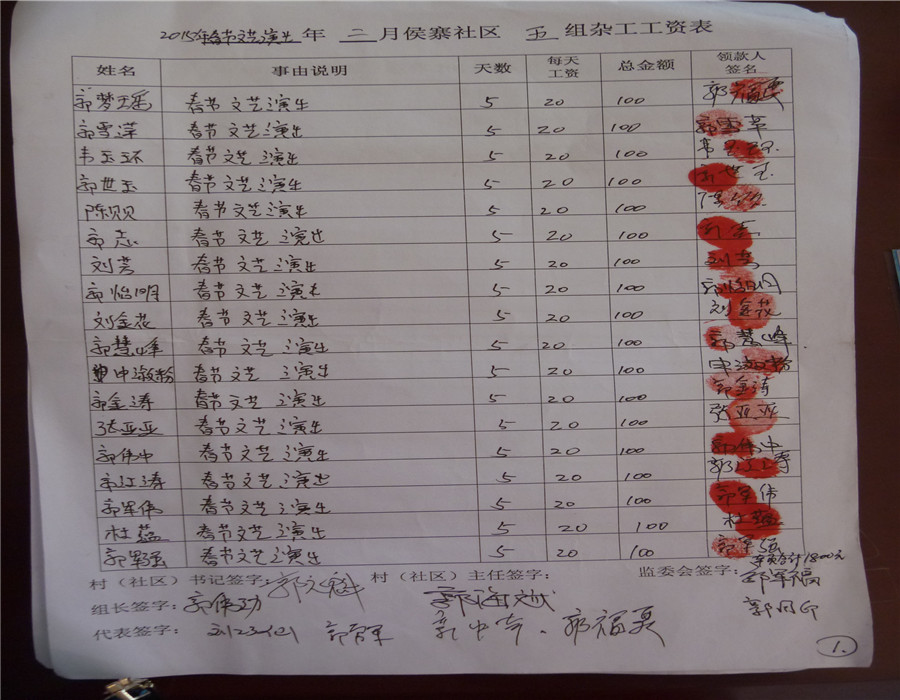 2015年春节文艺演出年 二 月侯寨社区 五 组杂工工资表
姓名 事由说明 天数 每天工资 总金额 领款人签名
郭梦瑶 春节文艺演出 5 20 100
郭雪萍 春节文艺演出 5 20 100 郭雪苹
韦玉环 春节文艺演出 5 20 100
郭世玉 春节文艺演出 5 20 100 郭世玉
陈贝贝 春节文艺演出 5 20 100
郭志 春节文艺演出 5 20 100
刘芳 春节文艺演出 5 20 100 刘芳
郭怡明 春节文艺演出 5 20 100 郭怡明
刘金花 春节文艺演出 5 20 100 刘金花
郭慧峰 春节文艺演出 5 20 100 郭慧峰
申淑粉 春节文艺演出 5 20 100 申淑粉
郭金涛 春节文艺演出 5 20 100 郭金涛
张亚亚 春节文艺演出 5 20 100 张亚亚
郭伟中 春节文艺演出 5 20 100 郭伟中
郭江涛 春节文艺演出 5 20 100 郭江涛
郭军伟 春节文艺演出 5 20 100 郭军伟
杜蕴 春节文艺演出 5 20 100 杜蕴
郭军强 春节文艺演出 5 20 100 郭军强
本页合计1800元
村（社区）书记签字： 村（社区）主任签字： 监委会签字：郭军福
组长签字：郭伟功
代表签字： 郭福夏
1.